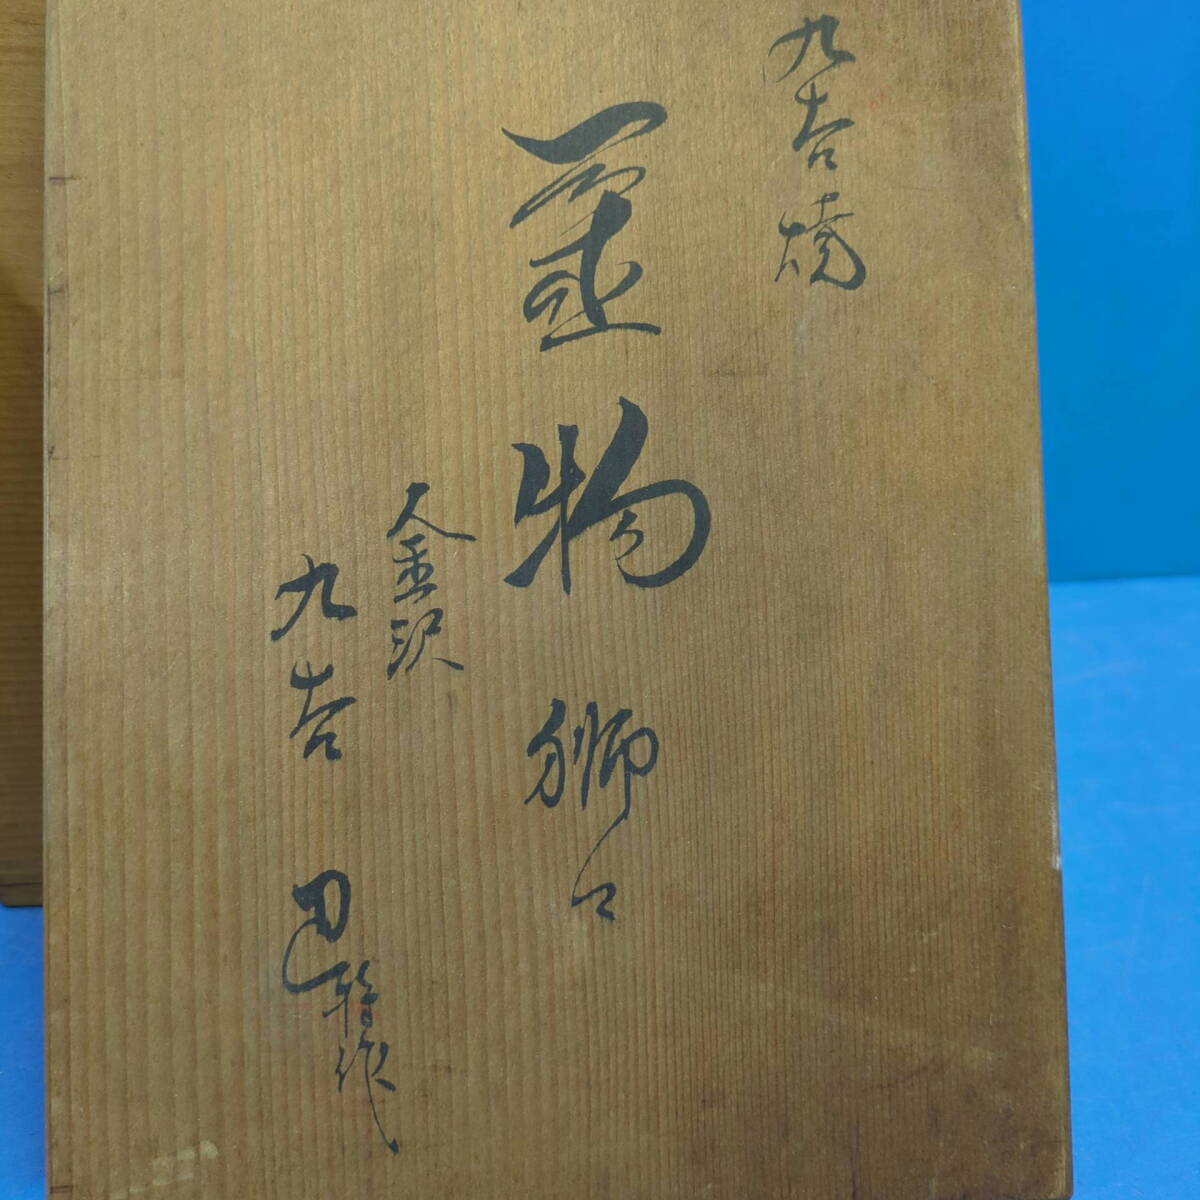 九谷焼
置物 獅々
金沢
九谷 作